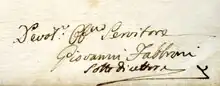 Devot.º Obb.º Servitore
Giovanni Fabbroni
Sotto direttore